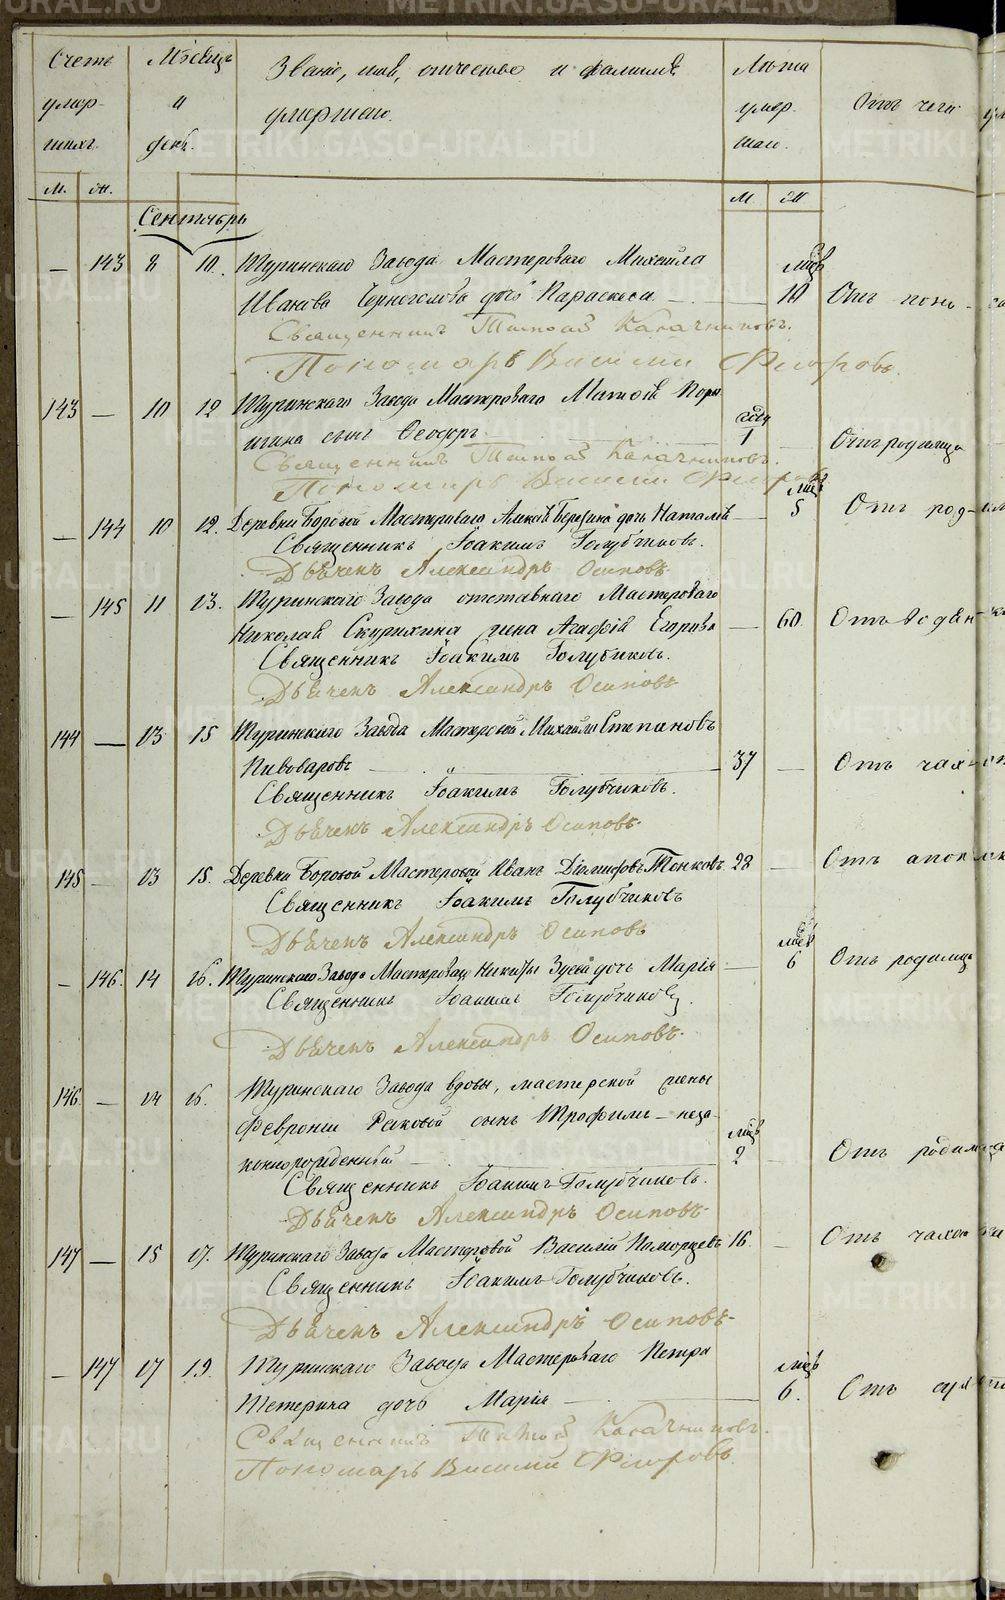 Счетъ Мѣсяцъ Званіе, имя, отчество и фамилія Лѣта
умер- и умершаго. умер. Отъ чего
шихъ. день. шаго.
м. ж. м ж
Сентябрь
мѣсяцъ
— 143 8 10. Туринскаго Завода Мастероваго Михайла
Иванова Черноголова дочь Параскева — 10 Отъ поно-
Священникъ Тимофей Калачниковъ.
Пономарь Василій Флоровъ.
143 — 10 12 Туринскаго Завода Мастероваго Матвѣя
сынъ Ѳеодоръ — 1 — Отъ родимца
годъ
Священникъ Тимофей Калачниковъ.
Пономарь Василій Флоровъ
— 144 10 12. Деревни Боровой Мастероваго дочь Наталья — 5 Отъ род-
Священникъ Іоакимъ Голубчиковъ.
Дьячекъ Александръ Осиповъ.
— 145 11 13. Туринскаго Завода отставнаго Мастероваго
Николая Скурихина жена Агафія Егорова — 60. Отъ водян-
Священникъ Іоакимъ Голубчиковъ.
Дьячекъ Александръ Осиповъ
144 — 13 15 Туринскаго Завода Мастеровой Михайло Степановъ
Пивоваровъ — 37 — Отъ чахот
Священникъ Іоакимъ Голубчиковъ.
Дьячекъ Александръ Осиповъ.
145 — 13 15. Деревни Боровой Мастеровой Иванъ Тонковъ 28 — Отъ апоплек
Священникъ Іоакимъ Голубчиковъ
Дьячекъ Александръ Осиповъ
— 146. 14 16. Туринскаго Завода Мастероваго Никиты Зуева дочь Марія — 6 Отъ родимца
Священникъ Іоакимъ Голубчиковъ.
Дьячекъ Александръ Осиповъ.
146. — 14 16. Туринскаго Завода вдовы, мастерской жены
Февроніи Раковой сынъ Трофимъ — неза-
конорожденный — 2 Отъ родимца
Священникъ Іоакимъ Голубчиковъ.
Дьячекъ Александръ Осиповъ.
147 — 15 17. Туринскаго Завода Мастеровой Василій Поморцевъ 16 — Отъ чахот
Священникъ Іоакимъ Голубчиковъ.
Дьячекъ Александръ Осиповъ.
— 147 17 19. Туринскаго Завода Мастероваго Петра
Тетерина дочь Марія — 6. Отъ
Священникъ Тимофей Калачниковъ.
Пономарь Василій Флоровъ.
METRIKI.GASO-URAL.RU